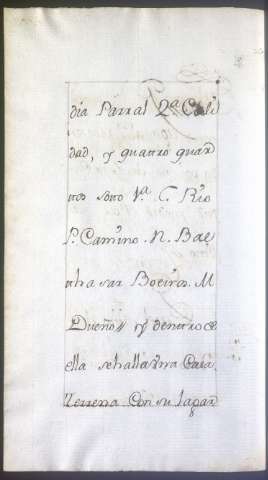 dia Parral 2ª Cali
dad, y quattro quar
ttos sotto Vª. C. Rio
P. Camino. N. Bal
thasar Boeiro. M
Dueño y dentro de
ella se halla vna Casa
Terrena Con su lagar